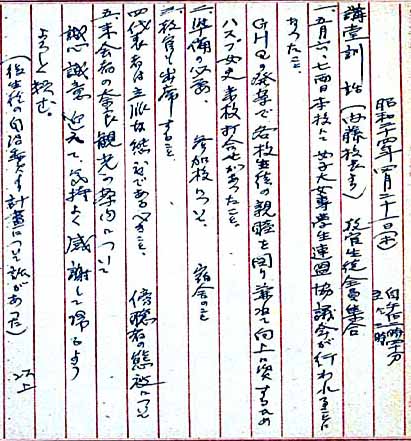 昭和二十四年四月二十一日(木) 自午后二時四十分 至〃三時
講堂訓話(内藤校長より) 教官生徒全員集合
一、五月六、七両日本校にて女子大女専学生連盟協議会が行われることに
なったこと、
GHQの発案で各校生徒の親睦を図り兼ねて向上に資するため
ハスブ女史来校打合せがあったこと、
二、準備の必要、参加校について、宿舎のこと
三、教官も出席すること
四、代表者は立派な態度であるべきこと、傍聴者の態度について
五、来会者の奈良観光の案内について
誠心誠意迎えて、気持よく感謝して帰るよう
よろしく頼む。
(後生徒の自治委員 計画について話があった) 以上